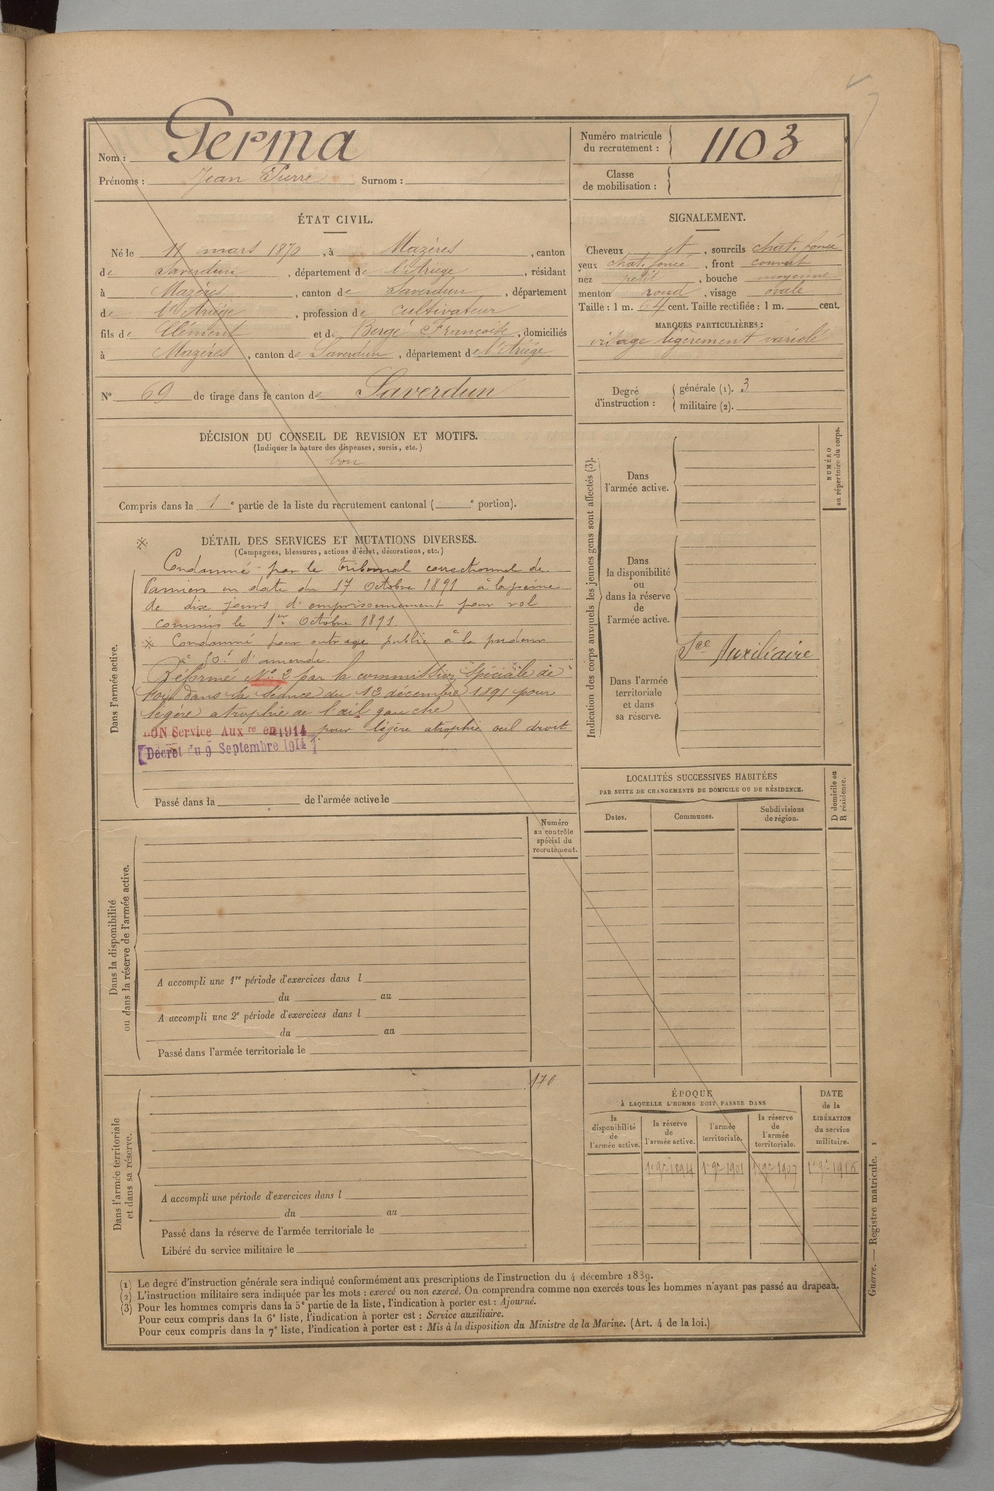 Nom : Perma
Prénoms : Jean Pierre Surnom :
Numéro matricule du recrutement : 1103
Classe de mobilisation :
ÉTAT CIVIL.
Né le 11 mars 1870, à Mazères, canton
de Saverdun, département de l'Ariège, résidant
à Mazères, canton de Saverdun, département
de l'Ariège, profession de cultivateur
fils de Clément et de Bergé Françoise, domiciliés
à Mazères, canton de Saverdun, département de l'Ariège
N° 69 de tirage dans le canton de Saverdun
SIGNALEMENT.
Cheveux , sourcils chat. foncé
yeux chat. foncé, front couvert
nez petit, bouche moyenne
menton rond, visage ovale
Taille : 1 m. 64 cent. Taille rectifiée : 1 m. cent.
MARQUES PARTICULIÈRES :
visage légèrement variolé
Degré d'instruction : générale (1). 3
militaire (2).
DÉCISION DU CONSEIL DE REVISION ET MOTIFS.
(Indiquer la nature des dispenses, sursis, etc.)
bon
Compris dans la 1e partie de la liste du recrutement cantonal ( e portion).
DÉTAIL DES SERVICES ET MUTATIONS DIVERSES.
(Campagnes, blessures, actions d'éclat, décorations, etc.)
Dans l'armée active.
Condamné par le tribunal correctionnel de
Pamiers en date du 17 Octobre 1891 à la peine
de dix jours d'emprisonnement pour vol
commis le 1er Octobre 1891
※ Condamné pour outrage public à la pudeur
à 50f d'amende
Réformé No 2 par la commission Spéciale de
Foix dans sa séance du 12 décembre 1891 pour
légère atrophie de l'œil gauche
BON Service Auxre en 1914 pour légère atrophie œil droit
[Décret du 9 Septembre 1914]
Passé dans la de l'armée active le
Indication des corps auxquels les jeunes gens sont affectés (3).
NUMÉRO au répertoire du corps.
Dans l'armée active.
Dans la disponibilité ou dans la réserve de l'armée active.
Sce Auxiliaire
Dans l'armée territoriale et dans sa réserve.
LOCALITÉS SUCCESSIVES HABITÉES
PAR SUITE DE CHANGEMENTS DE DOMICILE OU DE RÉSIDENCE.
Dates. Communes. Subdivisions de région.
D domicile ou R résidence.
Dans la disponibilité ou dans la réserve de l'armée active.
Numéro au contrôle spécial du recrutement.
A accompli une 1re période d'exercices dans l
du au
A accompli une 2e période d'exercices dans l
du au
Passé dans l'armée territoriale le
Dans l'armée territoriale et dans sa réserve.
170
A accompli une période d'exercices dans l
du au
Passé dans la réserve de l'armée territoriale le
Libéré du service militaire le
ÉPOQUE
À LAQUELLE L'HOMME DOIT PASSER DANS
la disponibilité de l'armée active.
la réserve de l'armée active.
l'armée territoriale.
la réserve de l'armée territoriale.
DATE de la LIBÉRATION du service militaire.
1er 9bre 1894 1er 9bre 1901 1er 9bre 1907
(1) Le degré d'instruction générale sera indiqué conformément aux prescriptions de l'instruction du 4 décembre 1889.
(2) L'instruction militaire sera indiquée par les mots : exercé ou non exercé. On comprendra comme non exercés tous les hommes n'ayant pas passé au drapeau.
(3) Pour les hommes compris dans la 5e partie de la liste, l'indication à porter est : Ajourné.
Pour ceux compris dans la 6e liste, l'indication à porter est : Service auxiliaire.
Pour ceux compris dans la 7e liste, l'indication à porter est : Mis à la disposition du Ministre de la Marine. (Art. 4 de la loi.)
Guerre. — Registre matricule. 1